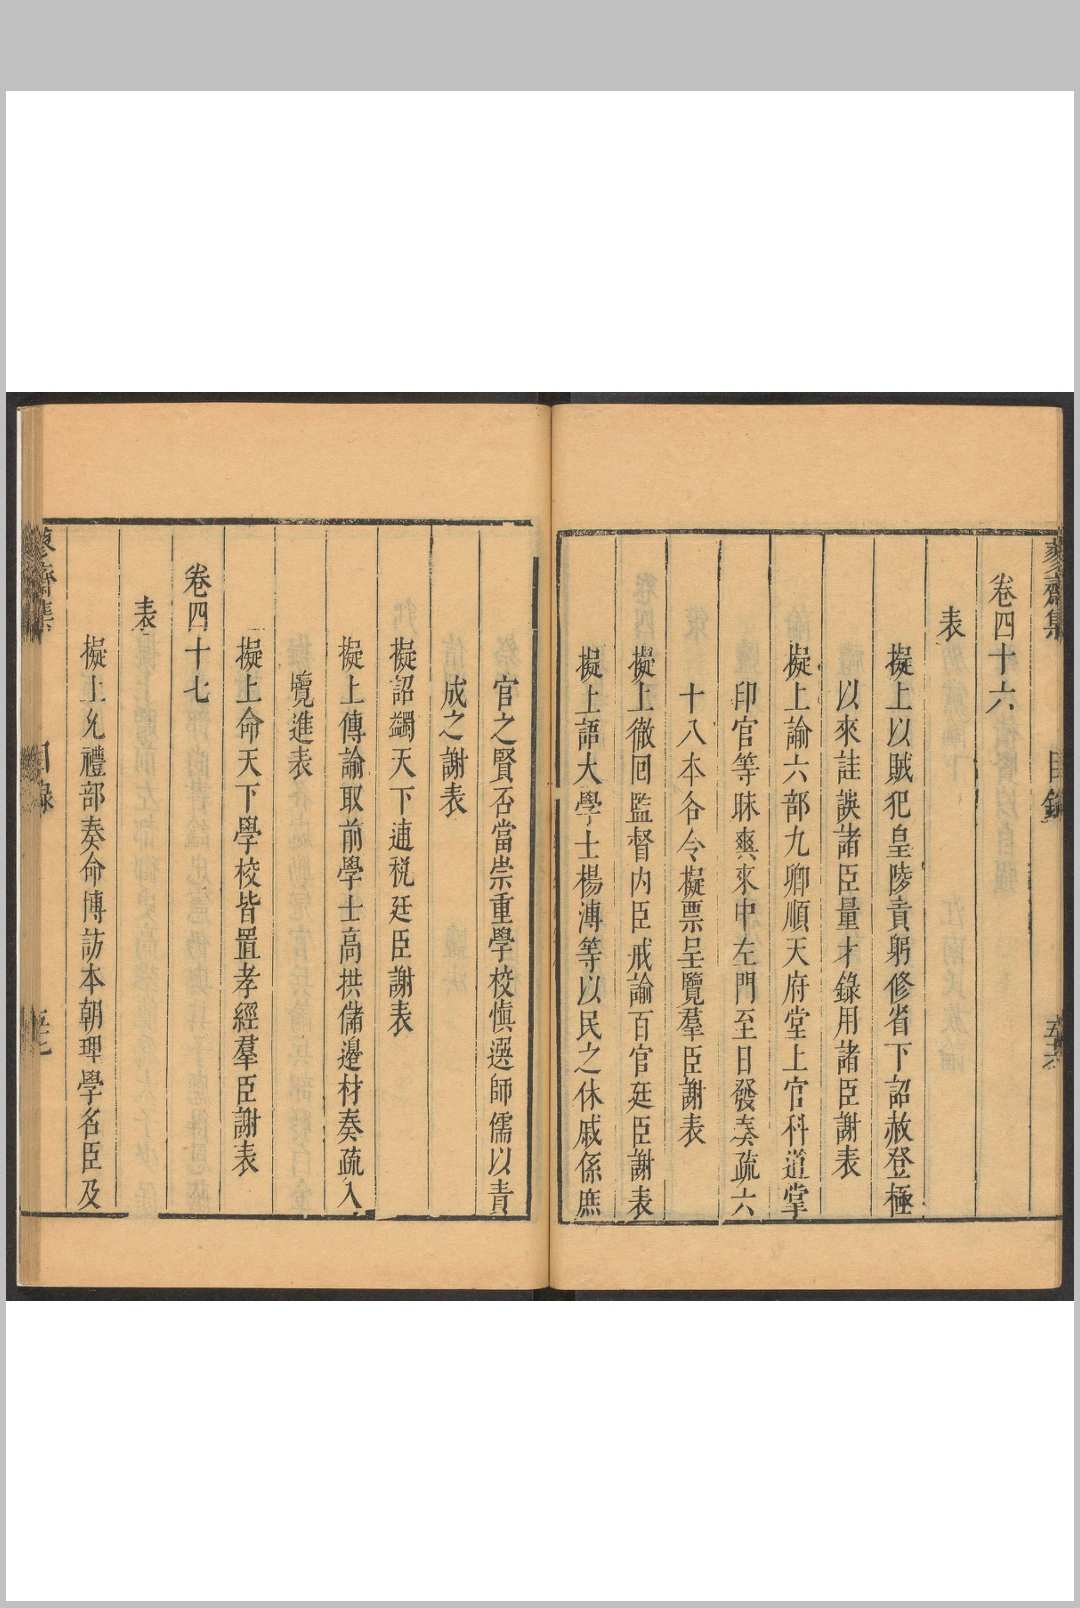 卷四十六
表
擬上以賊犯皇陵責躬修省下詔赦登極
以來詿誤諸臣量才錄用諸臣謝表
擬上諭六部九卿順天府堂上官科道掌
印官等昧爽來中左門至日發奏疏六
十八本各令擬票呈覽羣臣謝表
擬上徹回監督內臣戒諭百官廷臣謝表
擬上語大學士楊溥等以民之休戚係庶
官之賢否當崇重學校慎選師儒以責
成之謝表
擬詔蠲天下逋稅廷臣謝表
擬上傳諭取前學士高拱儲邊材奏疏入
覽進表
擬上命天下學校皆置孝經羣臣謝表
卷四十七
表
擬上允禮部奏命博訪本朝理學名臣及
齋集 目錄 五十六
齋集 目錄